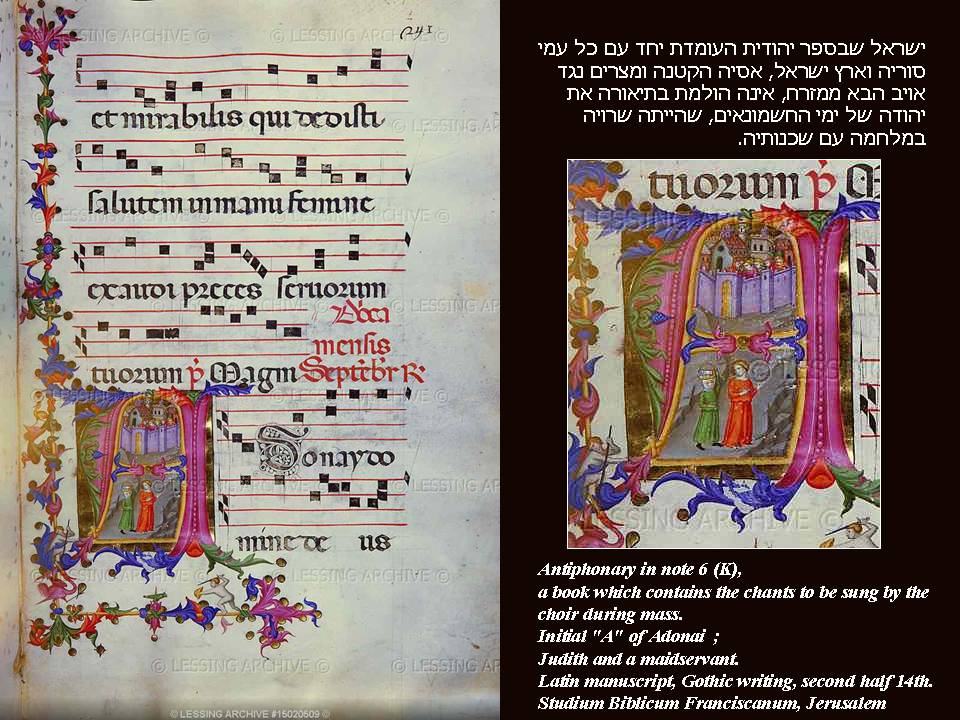 241
et mirabilis qui dedisti
salutem in manu femine
exaudi preces servorum
Dñca
mensis
tuorum p̃ Magni Septẽbr R⁊
donay do
mine de us
ישראל שבספר יהודית העומדת יחד עם כל עמי
סוריה וארץ ישראל, אסיה הקטנה ומצרים נגד
אויב הבא ממזרח, אינה הולמת בתיאורה את
יהודה של ימי החשמונאים, שהייתה שרויה
במלחמה עם שכנותיה.
tuorum p̃
Antiphonary in note 6 (K),
a book which contains the chants to be sung by the
choir during mass.
Initial "A" of Adonai ;
Judith and a maidservant.
Latin manuscript, Gothic writing, second half 14th.
Studium Biblicum Franciscanum, Jerusalem
© LESSING ARCHIVE #15020509 ©
© LESSING ARCHIVE ©